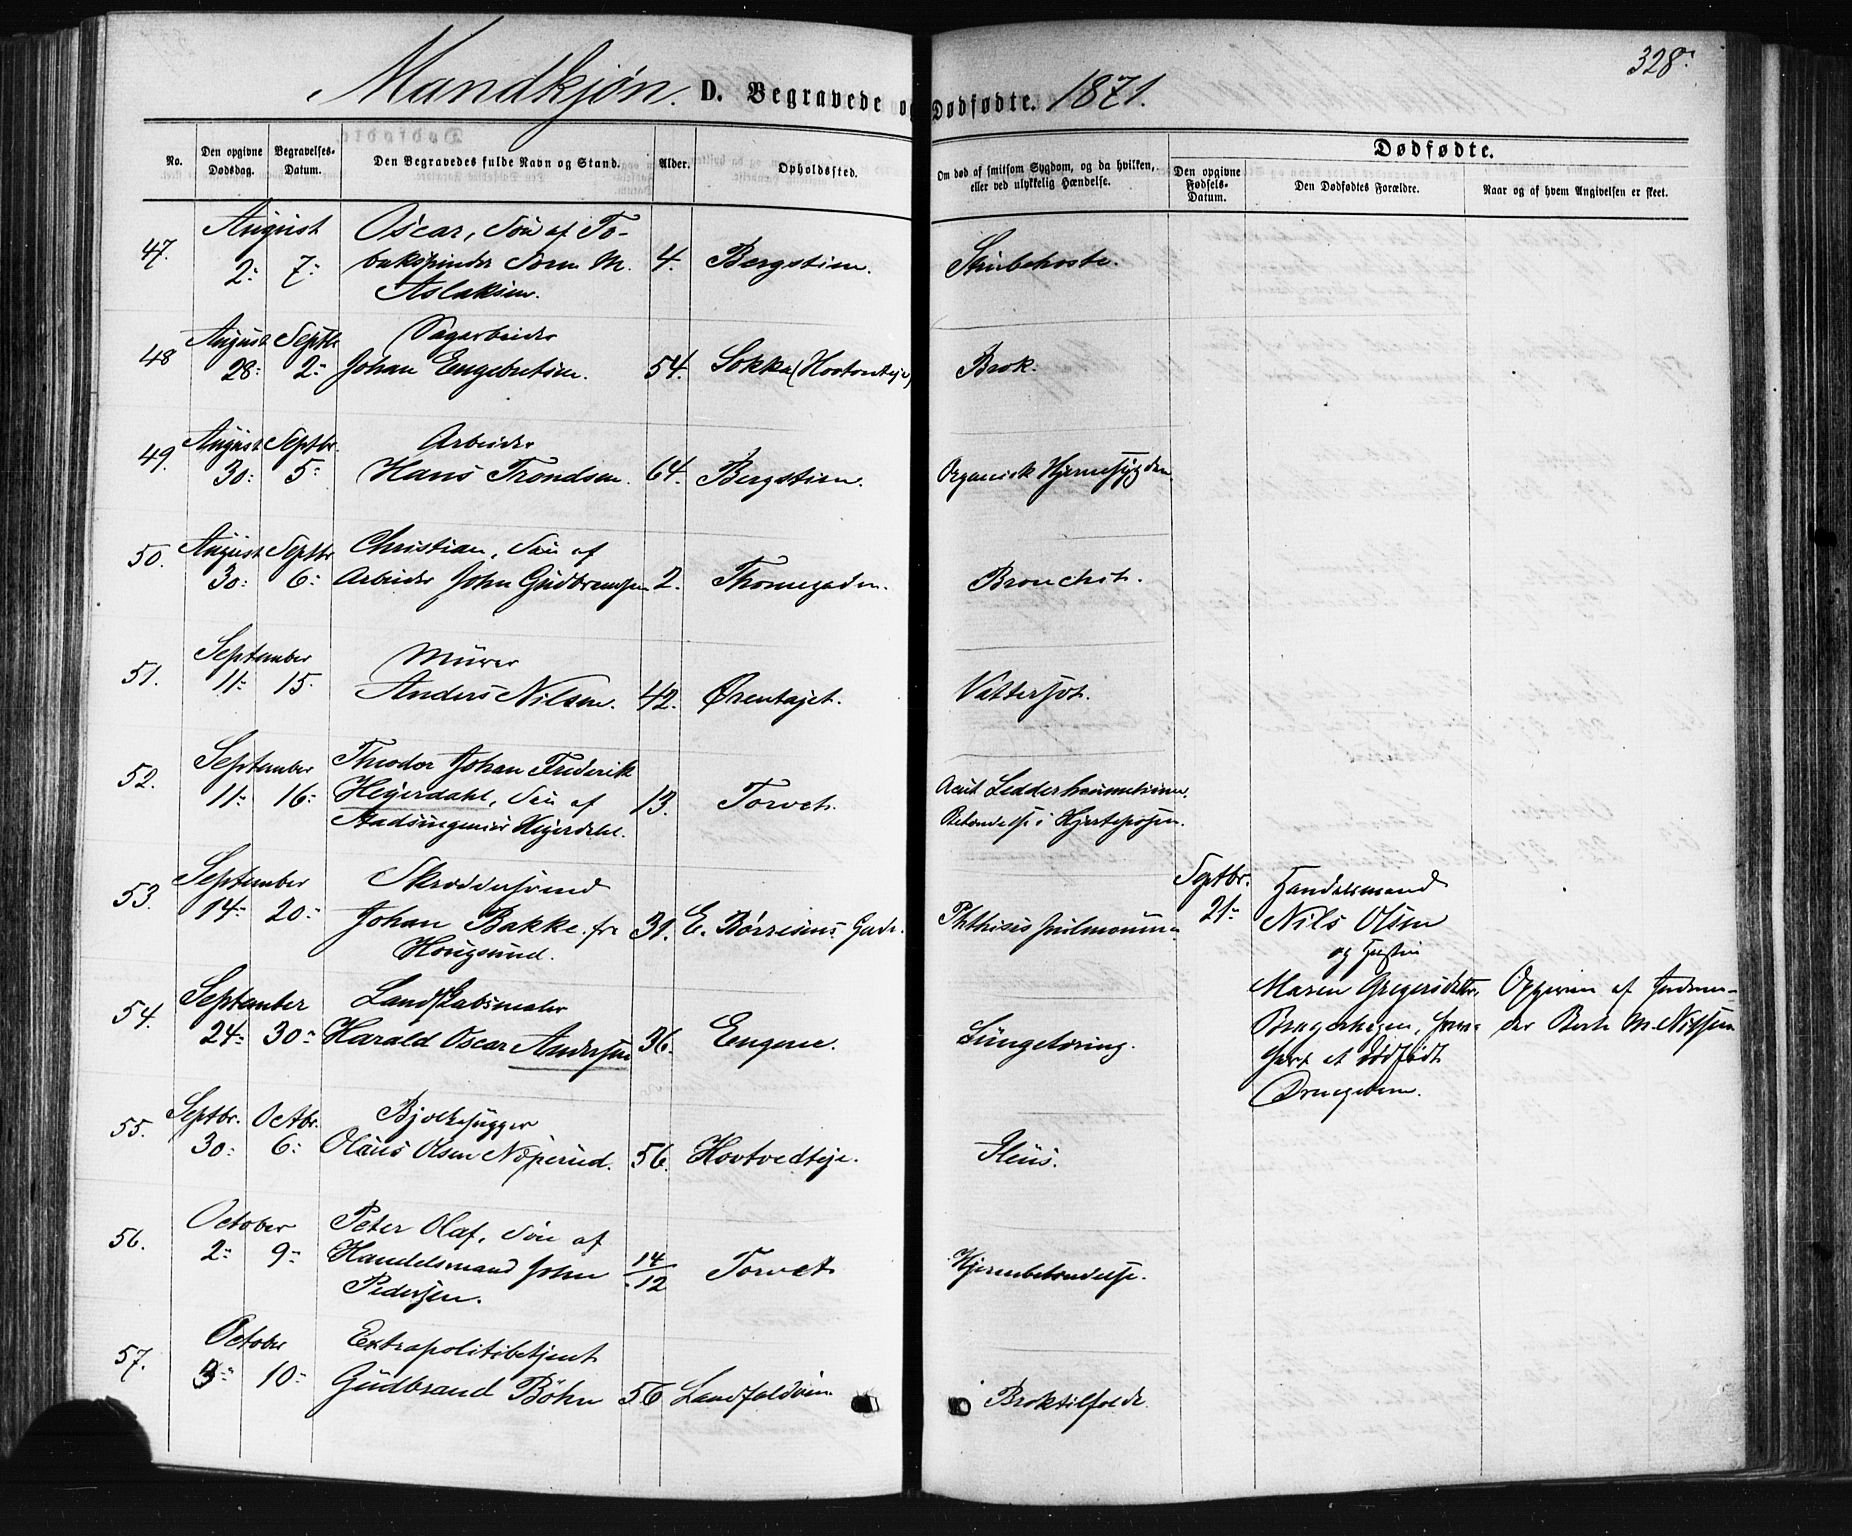 Mandkjøn. D. Begravede og Dødfødte. 1871.
328.
No. Den opgivne Dødsdag. Begravelses-Datum. Den Begravedes fulde Navn og Stand. Alder. Opholdssted. Om død af smitsom Sygdom, og da hvilken, eller ved ulykkelig Hændelse.
Dødfødte.
Den opgivne Fødsels-Datum. Den Dødfødtes Forældre. Naar og af hvem Angivelsen er skeet.
August Oscar, Søn af To-
47. 2 7 bakspinder Sørn M. 4. Bergstien. Strubehoste.
Aslaksen.
August Septbr. Sagarbeider
48 28 2 Johan Engebretsen. 54. Sokka (Hovtvnteje) Brok.
August Septbr. Arbeider
49. 30 5 Hans Trondsen. 64. Bergstien. Organisk Hjernesygdom
August Septbr Christian, Søn af
50. 30 6 Arbeider John Gudbrandsen 2. Thornegaden. Bronchit.
September Murer
51. 11 15 Anders Nilsen. 42. Ørentajet. Vattersot.
September Theodor Johan Frederik
52. 11 16 Heyerdahl, Søn af 13. Torvet. Acut Ledderheumatisme,
Stadsingeniør Heyerdahl. Betændelse i Hjerteposen.
September Skræddersvend
53. 14 20 Johan Bakke fra 31. E. Børresens Gade. Phthisis pulmonum
Hougsund.
Septbr. 21 Handelsmand
Nils Olsen
og Hustru
Maren Gregersdatter,
Bragernæs, 
et dødfødt
Drengebarn.
Opgiven af Jordmo-
der Berte M. Nilssen
September Landskabsmaler
54. 24 30 Harald Oscar Andersen 36. Engene. Lungetæring.
Septbr. Octbr. Bjelkehugger
55. 30 6 Olaus Olsen Noperud. 56. Hovtvedteje. Ileus.
October Peter Olaf, Søn af
56. 2 9 Handelsmand John 14/12 Torvet. Hjernebetændelse.
Pedersen.
October Extrapolitibetjent
57. 3 10 Gudbrand Bøhn 56 Landfaldøien Broktilfælde.